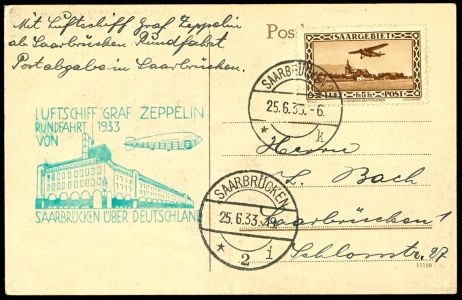 Mit Luftschiff Graf Zeppelin
ab Saarbrücken Rundfahrt
Postabgabe in Saarbrücken.
Post
SAARGEBIET
POST
SAARBRÜCKEN
25.6.33.-6.
* k
LUFTSCHIFF GRAF ZEPPELIN
RUNDFAHRT 1933
VON
SAARBRÜCKEN ÜBER DEUTSCHLAND
Herrn
L. Bach
Saarbrücken 1
Schlossstr. 27
SAARBRÜCKEN
25.6.33.
* 2 i